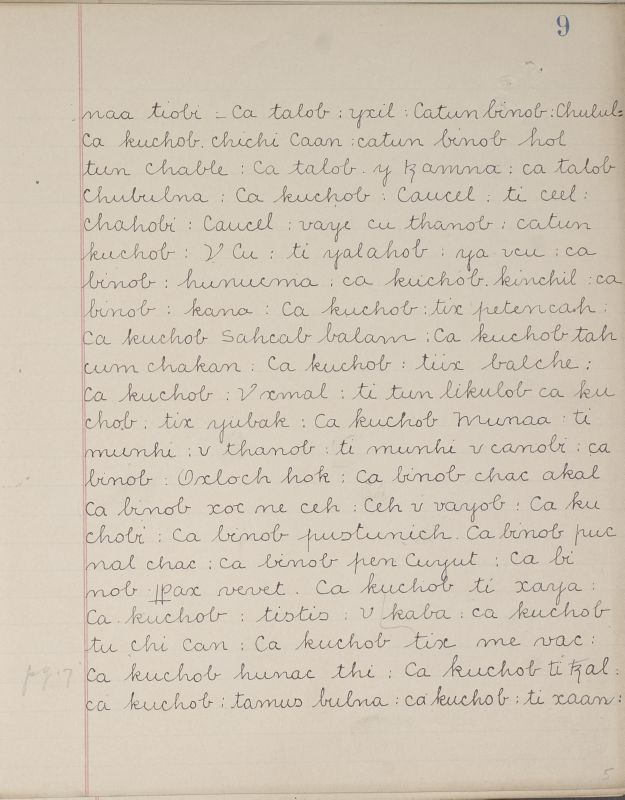 9
naa tiobi - Ca talob : yxil : Catun binob : Chulul=
Ca kuchob. chichi Caan : catun binob hol
tun chable : Ca talob. y ꜩamna : ca talob
Chubulna : Ca kuchob : Caucel : ti ceel :
chahobi : Caucel : vaye cu thanob : catun
kuchob : V Cu : ti yalahob : ya vcu : ca
binob : hunucma : ca kuchob. kinchil : ca
binob : kana : Ca kuchob : tix petencah :
Ca kuchob Sahcab balam : Ca kuchob tah
cum chakan : Ca kuchob : tiix balche :
Ca kuchob : Vxmal : ti tun likulob ca ku
chob : tix yubak : Ca kuchob Munaa : ti
munhi : v thanob : ti munhi v canobi : ca
binob : Oxloch hok : Ca binob chac akal
Ca binob xoc ne ceh : Ceh v vayob : Ca ku
chobi : Ca binob pustunich. Ca binob puc
nal chac : ca binob pen Cuyut : Ca bi
nob ꝑax vevet. Ca kuchob ti xaya :
Ca kuchob : tistis : v kaba : ca kuchob
tu chi can : Ca kuchob tix me vac :
pg. 7 Ca kuchob hunac thi : Ca kuchob ti ꜩal :
ca kuchob : tamus bulna : ca kuchob : ti xaan :
5